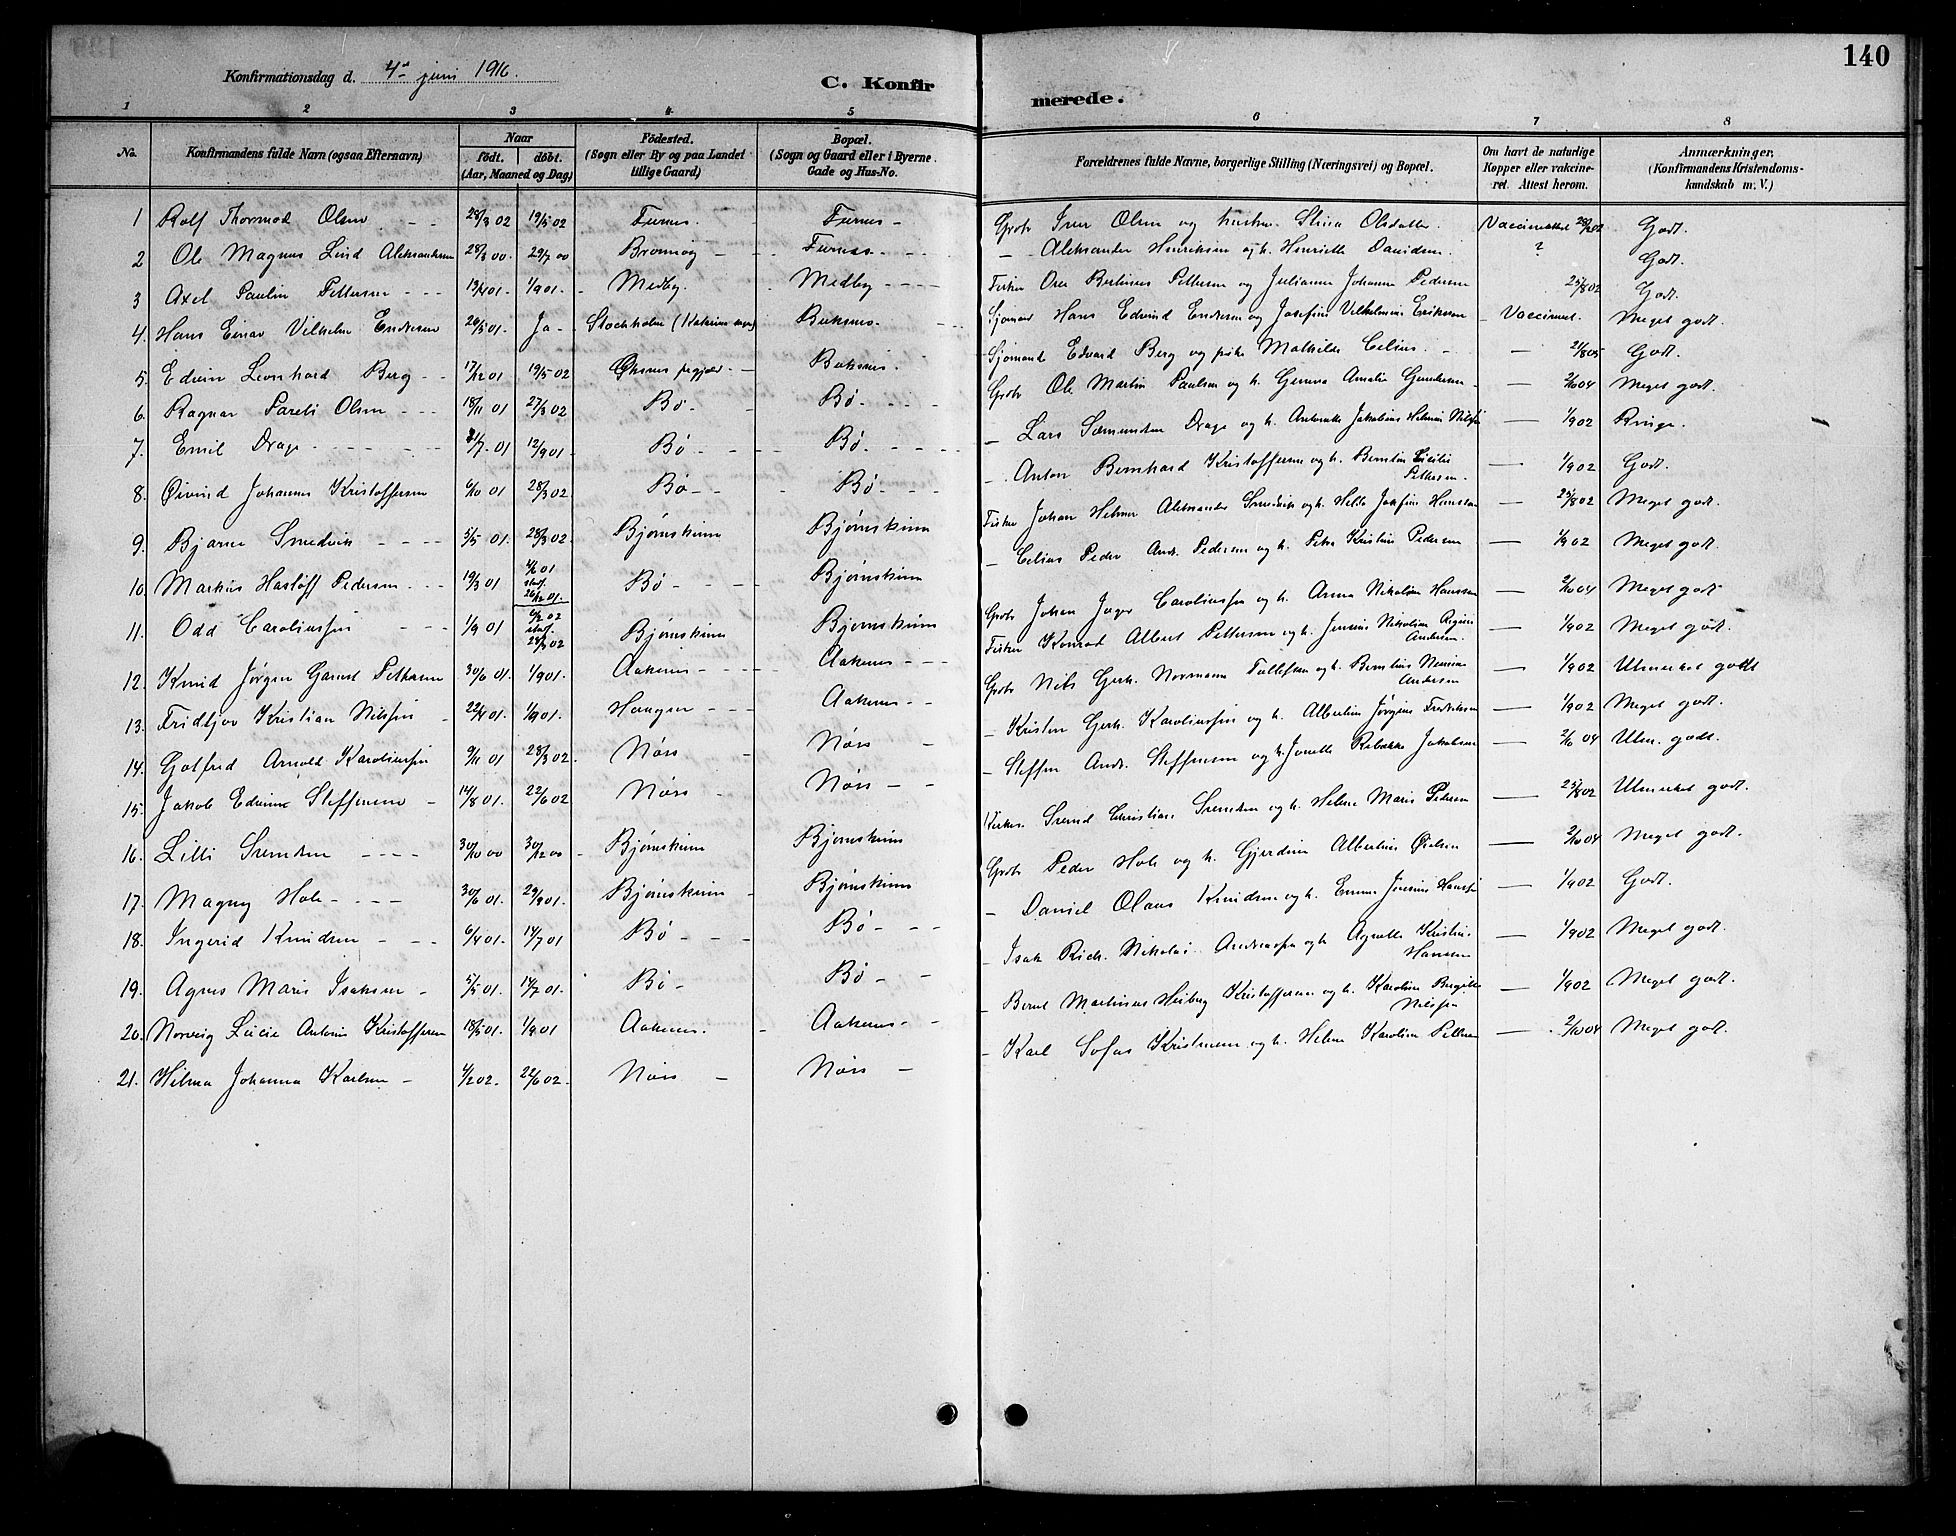 140
Konfirmationsdag d. 4de juni 1916.
C. Konfirmerede.
1 2 3 4 5 6 7 8
No. Konfirmandens fulde Navn (ogsaa Efternavn) Naar födt. döbt. (Aar, Maaned og Dag) Födested. (Sogn eller By og paa Landet tillige Gaard) Bopæl. (Sogn og Gaard eller i Byerne Gade og Hus-No. Forældrenes fulde Navne, borgerlige Stilling (Næringsvei) og Bopæl. Om havt de naturlige Kopper eller vaccineret. Attest herom. Anmærkninger, (Konfirmandens Kristendomskundskab m. V.)
1 Rolf Thormod Olsen 28/3 02 19/5 02 Furnes. Furnes Iver Olsen og hustru Stina Olsdatter. Vaccinattest Godt.
2 Ole Magnus Lind Aleksandersen 28/3 00 29/7 00 Furnes Aleksander Henriksen og h. Henriette Davidsen. ? Godt.
3 Axel Paulin Pettersen 1/9 01. Medby. Medby Fisker Bertinus Pettersen og Julianna Johanna Pedersen 25/8 02 Godt.
4. Hans Einar Vilhelm Endresen 26/5 01. Ja Stockholm Buksnes Sjømand Hans Edvind Endresen og Josefine Vilhelmine Eriksen Vaccineret. Meget godt.
5. Edvin Leonhard Berg 17/12 01 19/5 02 Øksnes Buksnes Sjømand Edvard Berg og pike Mathilde Celius. — 21/8 05 Godt.
6. Ragnar Pareli Olsen 18/11 01 27/3 02 Bø Bø Ole Martin Paulsen og h. Amalie — 2/10 04 Meget godt.
7. Emil Drage 12/9 01 Bø Bø Lars Drage og h. Jakobine — 1/9 02 Ringe.
8. Øivind Johannes Kristoffersen 6/10 01 28/3 02 Bø Bø Anton Bernhard Kristoffersen og h. Pettersen — 1/9 02 Godt.
9. Bjarne Smedvik 3/5 01. 28/3 02 Bjørnskinn Bjørnskinn Fisker Johan Helmer Aleksander Smedvik og h. Josefine — 25/8 02 Meget godt.
10. Markus Hartoff Pedersen 19/3 01 4/6 01 stadf. 26/12 01. Bø Bjørnskinn Celius Peder Andr. Pedersen og h. Petra Kristine Pedersen — 1/9 02 Meget godt.
11. Odd Caroliussen 1/9 01 6/2 02 stadf. 28/3 02 Bjørnskinn Bjørnskinn Johan Caroliussen og h. Anna Nikoline Hanssen — 2/10 04 Meget godt
12. Knud Jørgen Pettersen 30/6 01 1/9 01. Aakenes Aakenes Fisker Konrad Albert Pettersen og h. Nikoline Andersen. — 1/9 02 Meget godt.
13. Fridtjov Kristian Nilssen 22/4 01. 1/9 01. Haugnes Aakenes Nils Gerh. Normann Tollefsen og h. Andersen — 1/9 02 Utmerket godt
14. Gotfred Arnold Karoliussen 9/11 01 28/3 02. Nøss Nøss Kristen Gerh. Karoliussen og h. Albertine Jørgine Fredriksen — 1/9 02 Meget godt.
15. Jakob Edvin Steffensen 14/8 01. 22/6 02 Nøss Nøss Steffen Andr. Steffensen og h. Jonette Rebekka Jakobsen — 2/10 04 Utm. godt.
16. Lilli Svendsen 30/10 00 30/12 00 Bjørnskinn Bjørnskinn Svend Christian Svendsen og h. Helene Marie Pedersen — 25/8 02 Utmerket godt.
17. Magny Hole 30/6 01 29/9 01. Bjørnskinn Bjørnskinn Peder Hole og h. Gjerdine Albertine — 2/10 04 Meget godt.
18. Ingerid Knudsen 6/4 01. 14/7 01 Bø Bø Daniel Olaus Knudsen og h. Emma Jensine — 1/9 02 Godt.
19. Agnes Marie Isaksen 5/5 01. 14/7 01. Bø Bø Isak Rich. Nikolai Andreassen og h. Agnethe Kristine Hansen — 1/9 02 Meget godt.
20. Norveig Lucie Antonie Kristoffersen 18/5 01. 1/9 01 Aakenes. Aakenes Bernt Martinus Heiberg Kristoffersen og h. Karoline Birgitte Nilssen — 1/9 02 Meget godt.
21. Hilma Johanna Karlsen 4/2 02. 22/6 02. Nøss Nøss Karl Sofus Kristensen og h. Helene Karoline Pettersen — 2/10 04 Meget godt.